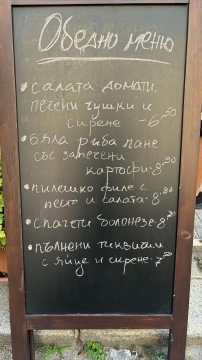 Обедно меню
• салата домати,
печени чушки и
сирене - 6,50
• бяла риба пане
със запечени
картофи - 8,90
• пилешко филе с
песто и салата - 8,80
• спагети болонезе - 8,20
• пълнени тиквички
с яйце и сирене - 7,50